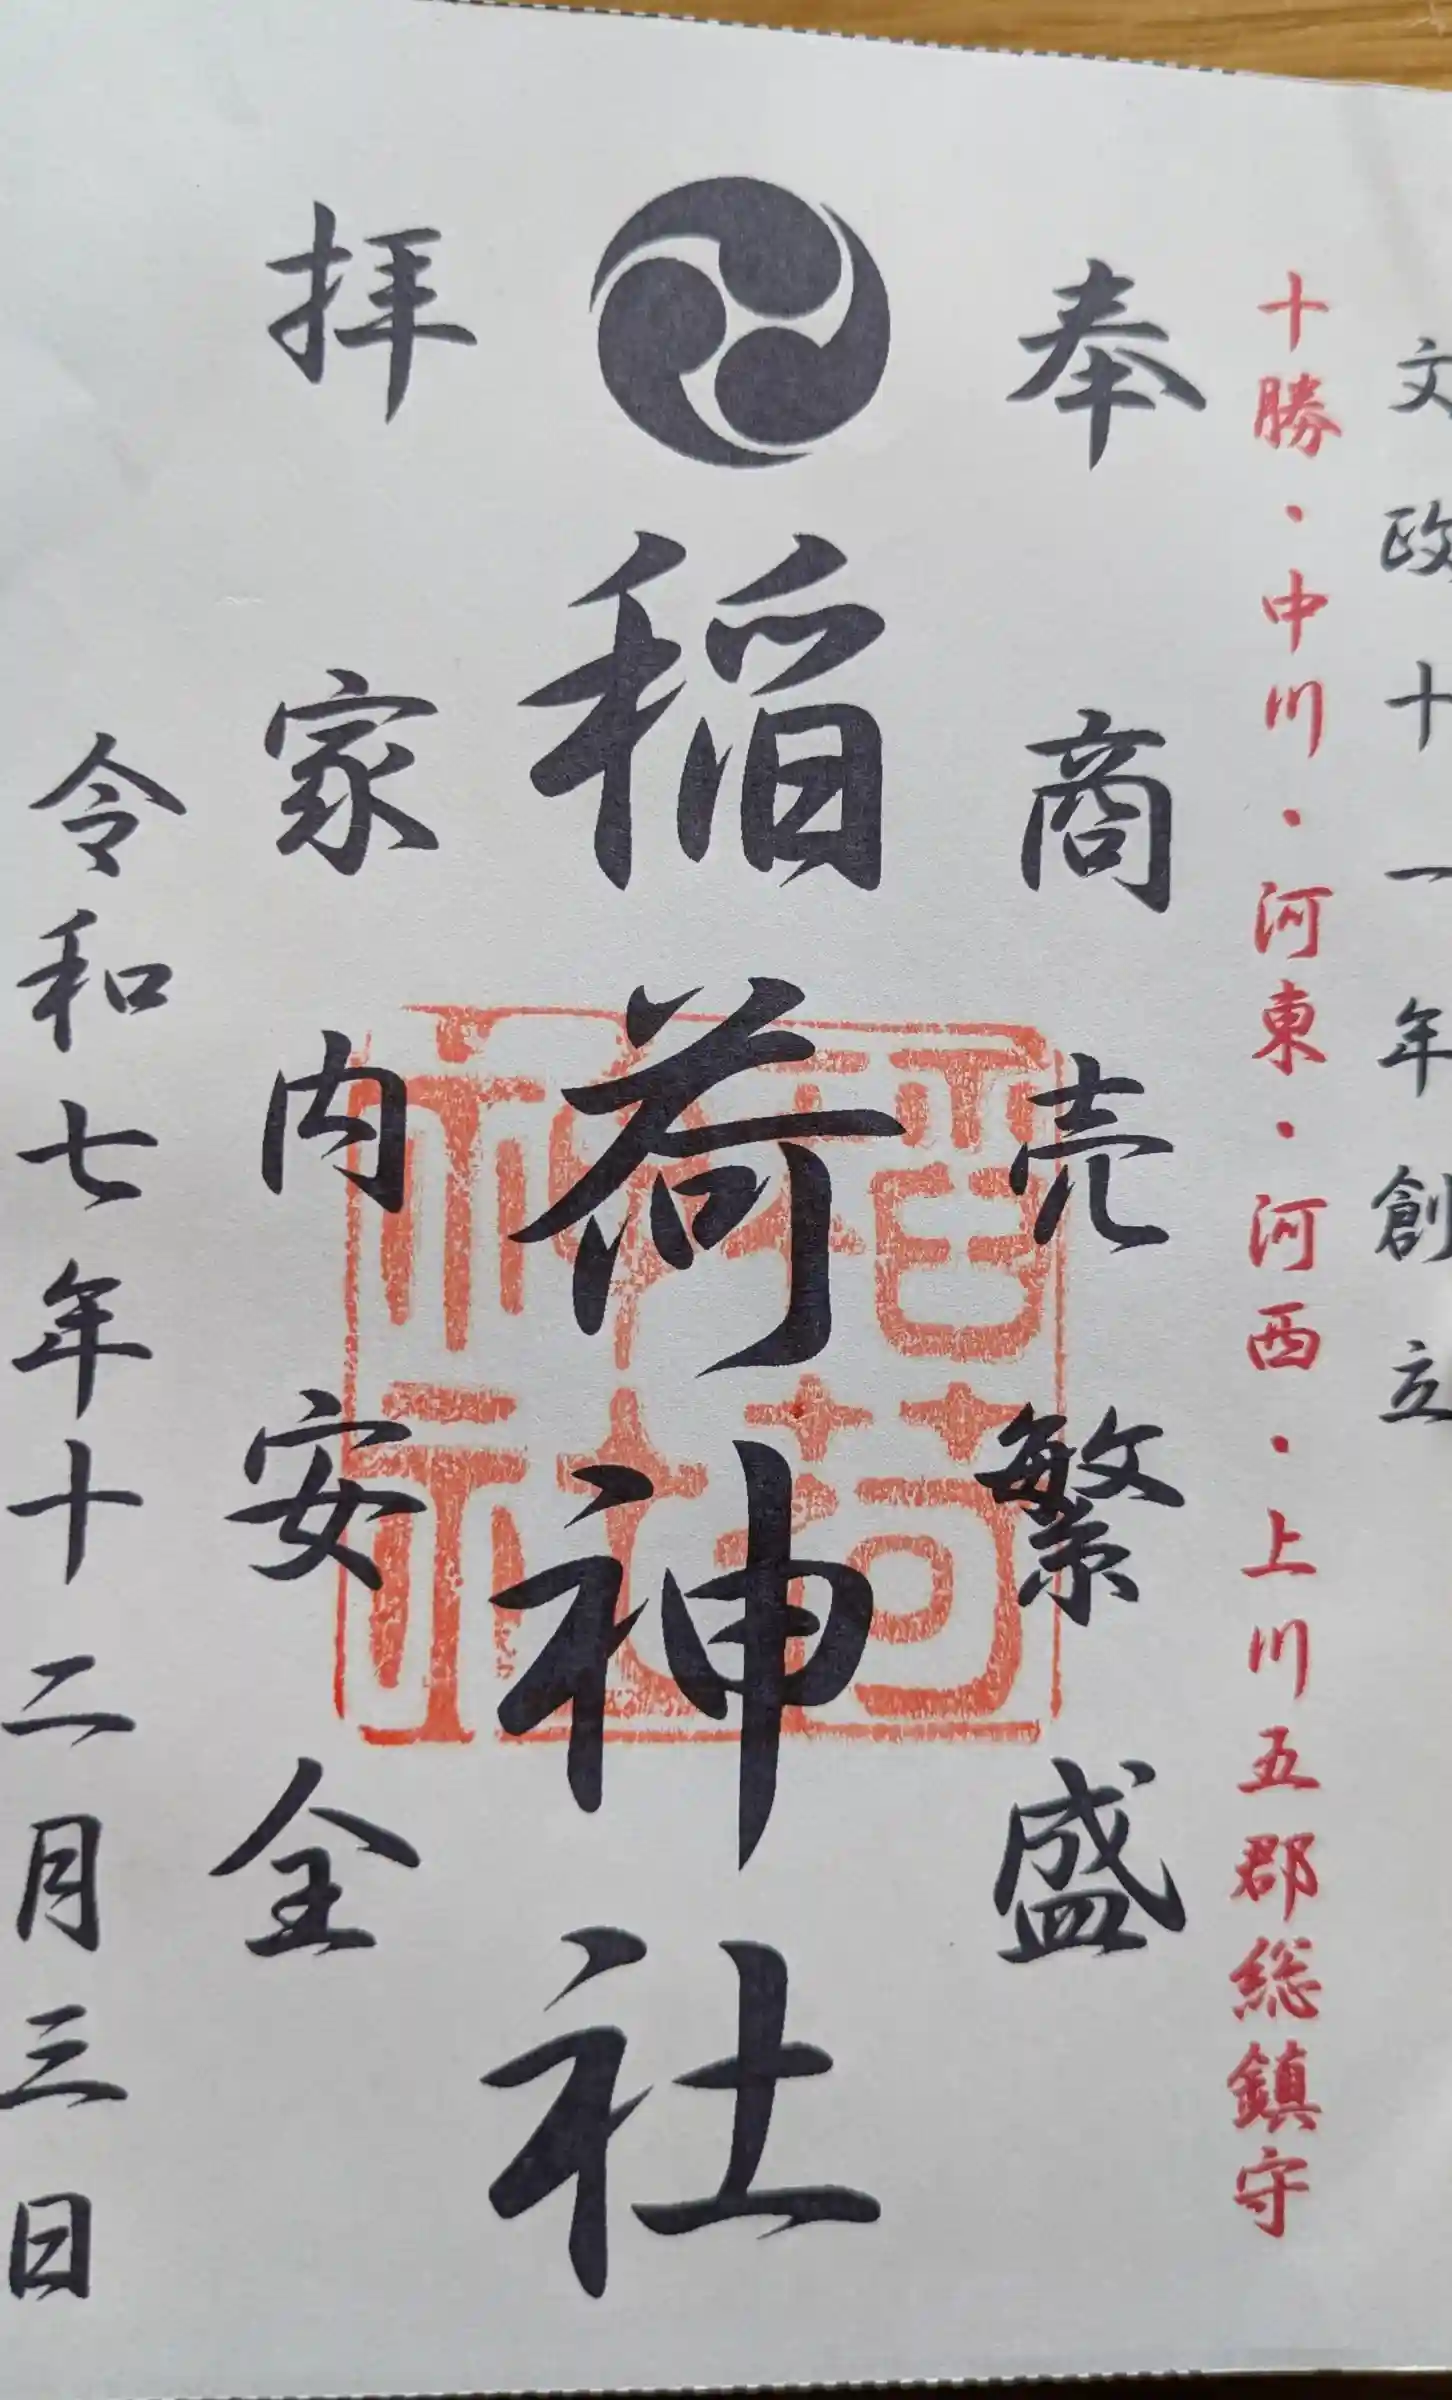 文政十一年創立
十勝・中川・河東・河西・上川五郡総鎮守
奉
商売繁盛
稲荷神社
稲荷
神社
拝
家内安全
令和七年十二月三日